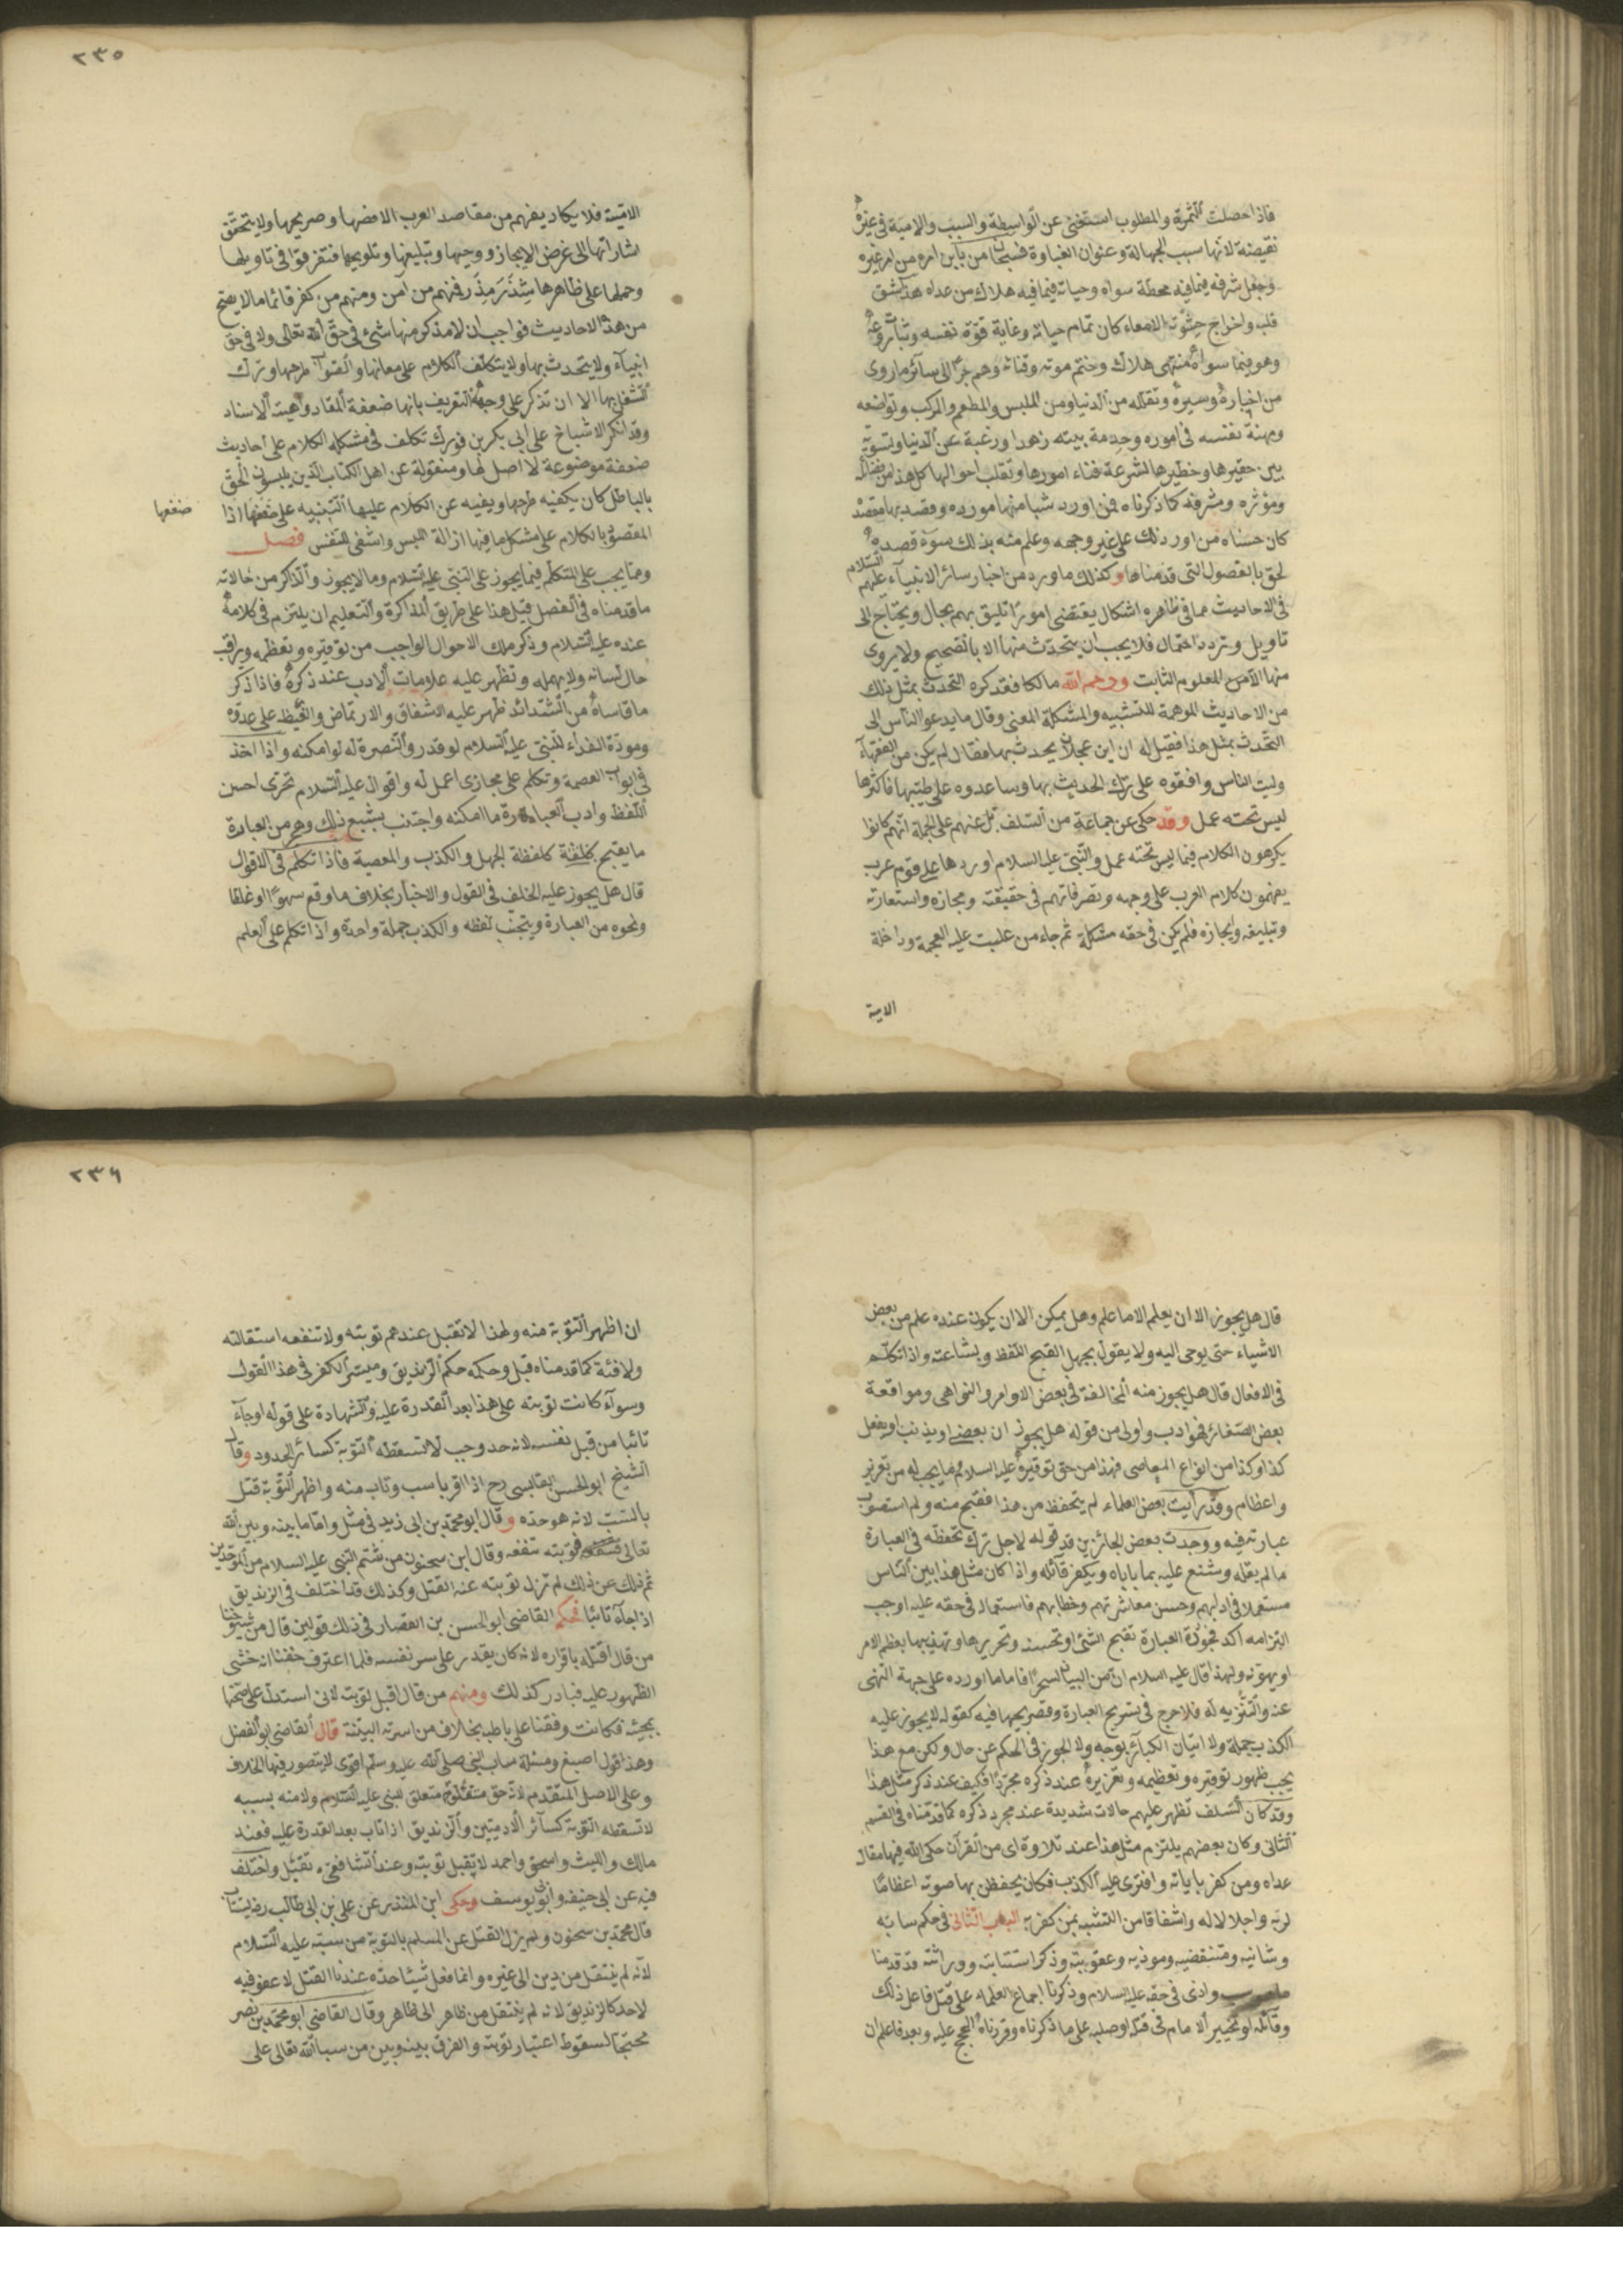 فاذا حصلت الثمرة والمطلوب استغنى عن الواسطة والسبب والامية في غيره
نقيصة لانها سبب الجهالة وعنوان الغباوة فسبحان من باين امره من امر غيره
وجعل شرفه فيما فيه محطة سواه وحياته فيما فيه هلاك من عداه هذا شق
قلبه واخراج حشوته كان تمام حياته وغاية قوة نفسه وثبات روعه
وهو فيما سواه منتهى هلاك وختم موته وفنائه وهم جرا الى سائر ما روى
من اخباره وسيره وتقلله من الدنيا ومن الملبس والمطعم والمركب وتواضعه
ومهنة نفسه في اموره وخدمة بيته زهدا ورغبة عن الدنيا وتسوية
بين حقيرها وخطيرها لسرعة فناء امورها وتقلب احوالها كل هذا من فضائله
ومؤثره وشرفه كما ذكرناه فمن اورد شيا منها مورده وقصد بها مقصده
كان حسنا ومن اورد ذلك على غير وجهه وعلم منه بذلك سوء قصده
لحق بالفصول التي قدمناها وكذلك ما ورد من اخبار سائر الانبياء عليهم السلام
في الاحاديث مما في ظاهره اشكال يقتضى امورا تليق بهم بحال ويحتاج الى
تاويل وتردد احتمال فلا يجب ان يتحدث منها الا بالصحيح ولا يروى
منها الا المعلوم الثابت ورحم الله مالكا فقد كره التحدث بمثل ذلك
من الاحاديث الموهمة للتشبيه والمشكلة المعنى وقال ما يدعو الناس الى
التحدث بمثل هذا فقيل له ان ابن عجلان يحدث بها فقال لم يكن من الفقهاء
وليت الناس وافقوه على ترك الحديث بها وساعدوه على طيبها فاكثرها
ليس تحته عمل وقد حكى عن جماعة من السلف بل عنهم على الجملة انهم كانوا
يكرهون الكلام فيما ليس تحته عمل والنبي عليه السلام اوردها على قوم عرب
يفهمون كلام العرب على وجهه وتصرفاتهم في حقيقته ومجازه واستعارته
وتبليغه وايجازه فلم يكن في حقه مشكلة ثم جاء من غلبت عليه العجمة وداخلة
الامية
٢٣٥
الامية فلا يكاد يفهم من مقاصد العرب الا نصها وصريحها ولا يتحقق
شاراتها الى غرض الايجاز ووحيها وتبليغها وتلويحها فتفرقوا في تاويلها
وحملها على ظاهرها شذر مذر فمنهم من آمن ومنهم من كفر فاما ما لا يصح
من هذه الاحاديث فواجب ان لا مذكر منها شئ في حق الله تعالى ولا في حق
انبياء ولا يتحدث بها ولا يتكلف الكلام على معانيها والصواب طرحها وترك
الشغل بها الا ان تذكر على وجه التعريف بانها ضعفة المقاد واهية الاسناد
وقد انكر الاشياخ على ابي بكر بن فورك تكلف في مشكله الكلام على احاديث
ضعفة موضوعة لا اصل لها ومنقولة عن اهل الكتاب الذين يلبسون الحق
بالباطل كان يكفيه طرحها ويغنيه عن الكلام عليها التنبيه على ضعفها اذا
ضعفها
المقصود بالكلام على مشكل ما فيها ازالة اللبس واشفى للنفس فصل
ومما يجب على المتكلم فيما يجوز على النبي عليه السلام وما لا يجوز والذاكر من حالاته
ما قدمناه في الفصل قبل هذا على طريق المذاكرة والتعليم ان يلتزم في كلامه
عنده عليه السلام وذكر ملك الاحوال الواجب من توقيره وتعظمه ويراقب
حال لسانه ولا يهمله وتظهر عليه علامات الادب عند ذكره فاذا ذكر
ما قاساه من الشدائد ظهر عليه الاشفاق والارتماض والغيظ على عدوه
ومودة الفداء للنبي عليه السلام لو قدر والنصرة له لو امكنه واذا اخذ
في ابواب العصمة وتكلم على مجارى اعمله واقوال عليه السلام تحرى احسن
اللفظ وادب العبارة ما امكنه واجتنب بشيع ذلك وهجر من العبارة
ما يقبح كلفظة الجهل والكذب والمعصية فاذا تكلم في الاقوال
قال هل يجوز عليه الخلف في القول والاخبار بخلاف ما وقع سهوا او غلطا
ونحوه من العبارة ويتجنب لفظه والكذب جملة واحدة واذا تكلم على العلم
قال هل يجوز الا ان يعلم الا ما علم وهل يمكن الا ان يكون عنده علم من بعض
الاشياء حتى يوحى اليه ولا يقول بجهل القبح اللفظ وبشاعته واذا تكلم
في الافعال قال هل يجوز منه المخالفة في بعض الاوامر والنواهى ومواقعة
بعض الصغائر فهو ادب واولى من قوله هل يجوز ان يعصى او يذنب او يفعل
كذا وكذا من انواع المعاصى فهذا من حق توقيره عليه السلام وما يجب له من تعزير
واعظام وقد رايت بعض العلماء لم يتحفظ من هذا فقبح منه ولم استصوب
عبارته فيه ووجدت بعض الجائزين قد قوله لاجل ترك تحفظه في العبارة
ما لم يقله وشنع عليه بما ياباه ويكفر قائله واذا كان مثل هذا بين الناس
مستعملا في ادابهم وحسن معاشرتهم وخطابهم فاستعماله في حقه عليه اوجب
التزامه اكد فجودة العبارة تقبح الشئ او تحسنه وتحريرها وتهذيبها يعظم الامر
او يهونه ولهذا قال عليه السلام ان من البيان لسحرا فاما ما اورده على جهة النهى
عنه والتنزيه له فلا حرج في تسريح العبارة وتصريحها فيه كقوله لا يجوز عليه
الكذب جملة ولا اتيان الكبائر بوجه ولا الجوز في الحكم عن حال ولكن مع هذا
يجب ظهور توقيره وتعظيمه وتعزيره عند ذكره مجردا فكيف عند ذكر مثل هذا
وقد كان السلف تظهر عليهم حالات شديدة عند مجرد ذكره كما قدمناه في القسم
الثاني وكان بعضهم يلتزم مثل هذا عند تلاوة اى من القرآن حكى الله فيها مقال
عداه ومن كفر باياته وافترى عليه الكذب فكان يحفظ بها صوته اعظاما
لربه واجلالا له واشفاقا من التشبه بمن كفر به الباب الثاني في حكم سابه
وشانيه ومتنقصيه وموذيه وعقوبته وذكر استتابته ووراثته قد قدمنا
واذى في حقه عليه السلام وذكرنا اجماع العلماء على قتل فاعل ذلك
وقائله او تخيير الامام في قتله او صلبه على ما ذكرناه وقررناه الحجج عليه وبعد فاعلم ان
٢٣٦
ان اظهر التوبة منه ولهذا لا تقبل عندهم توبته ولا تنفعه استقالته
ولا فئة كما قدمناه قبل وحكمه حكم الزنديق ومسر الكفر في هذا القول
وسوآء كانت توبته على هذا بعد القدرة عليه والشهادة على قوله او جآء
تائبا من قبل نفسه لانه حد وجب لا تسقطه التوبة كسائر الحدود وقال
الشيخ ابو الحسن القابسى رح اذا اقر باسب وتاب منه واظهر التوبة قتل
بالسبب لانه هو حده وقال ابو محمد بن ابى زيد في مثل واما ما بينه وبين الله
تعالى فتوبته تنفعه وقال ابن سحنون من شتم النبي عليه السلام من الموحدين
ثم ذلك عن ذلك لم تزل توبته عنه القتل وكذلك قد اختلف في الزنديق
اذا جآء تائبا فحكم القاضى ابو الحسن بن القصار في ذلك قولين قال من شيوخنا
من قال اقتله باقراره لانه كان يقدر على سر نفسه فلما اعترف خفنا انه خشى
الظهور عليه فبادر كذلك ومنهم من قال اقبل توبته لانى استدل على صحتها
بمجيئه فكانت وقفنا على باطنه بخلاف من اسرته البينة قال القاضى ابو الفضل
وهذا قول اصبغ ومسئلة ساب النبي صلى الله عليه وسلم اقوى لا يتصور فيها الخلاف
وعلى الاصل المتقدم لانه حق متعلق للنبي عليه السلام ولامته بسببه
لا تسقطه التوبة كسآئر الادميين والزنديق اذا تاب بعد القدرة عليه فعند
مالك والليث واسحق واحمد لا تقبل توبته وعند الشافعى تقبل واختلف
فيه عن ابى حنيفه وابى يوسف وحكى ابن المنذر عن على بن ابى طالب رض يستتاب
قال محمد بن سحنون ولم يزل القتل عن المسلم بالتوبة من سبه عليه السلام
لانه لم ينتقل من دين الى غيره وانما فعل شيئا حده عندنا القتل لا عفو فيه
لاحد كالزنديق لانه لم ينتقل من ظاهر الى ظاهر وقال القاضى ابو محمد بن نصر
محتجا لسقوط اعتبار توبته والفرق بينه وبين من سب الله تعالى على